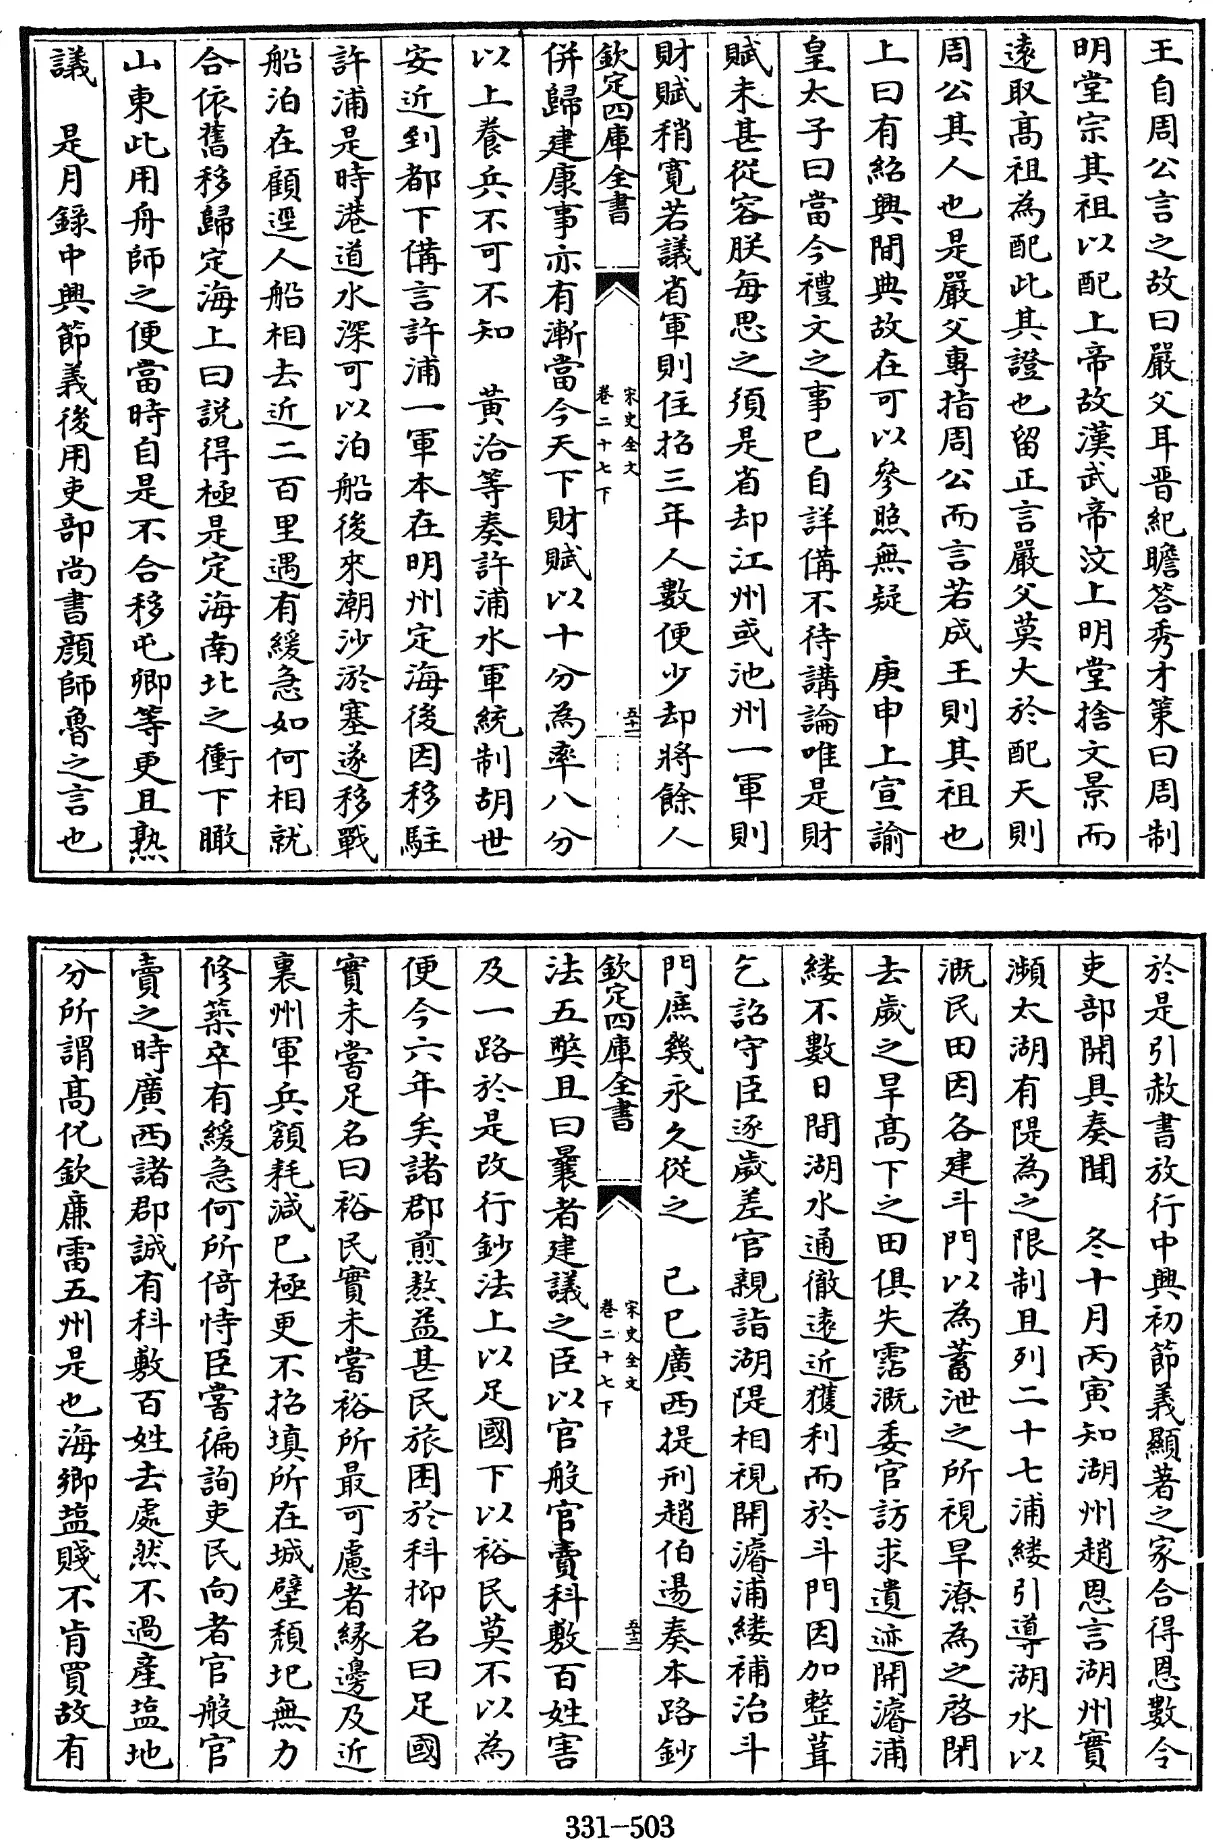 王自周公言之故曰嚴父耳晋紀瞻荅秀才策曰周制
明堂宗其祖以配上帝故漢武帝汶上明堂捨文景而
遠取髙祖為配此其證也留正言嚴父莫大於配天則
周公其人也是嚴父專指周公而言若成王則其祖也
上曰有紹興間典故在可以參照無疑　庚申上宣諭
皇太子曰當今禮文之事已自詳備不待講論唯是財
賦未甚從容朕每思之須是省却江州或池州一軍則
財賦稍寛若議省軍則住招三年人數便少却將餘人
欽定四庫全書
宋史全文
卷二十七下
五十二
併歸建康事亦有漸當今天下財賦以十分為率八分
以上養兵不可不知　黄洽等奏許浦水軍統制胡世
安近到都下備言許浦一軍本在明州定海後因移駐
許浦是時港道水深可以泊船後來潮沙淤塞遂移戰
船泊在顧逕人船相去近二百里遇有緩急如何相就
合依舊移歸定海上曰説得極是定海南北之衝下瞰
山東此用舟師之便當時自是不合移屯卿等更且熟
議　是月録中興節義後用吏部尚書顔師魯之言也
於是引赦書放行中興初節義顯著之家合得恩數令
吏部開具奏聞　冬十月丙寅知湖州趙恩言湖州實
瀕太湖有隄為之限制且列二十七浦縷引導湖水以
溉民田因各建斗門以為蓄泄之所視旱潦為之啓閉
去歲之旱髙下之田俱失霑溉委官訪求遺迹開濬浦
縷不數日間湖水通徹遠近獲利而於斗門因加整葺
乞詔守臣逐歲差官親詣湖隄相視開濬浦縷補治斗
門庶幾永久從之　己巳廣西提刑趙伯逷奏本路鈔
欽定四庫全書
宋史全文
卷二十七下
五十三
法五獘且曰曩者建議之臣以官般官賣科敷百姓害
及一路於是改行鈔法上以足國下以裕民莫不以為
便今六年矣諸郡煎熬益甚民旅困於科抑名曰足國
實未嘗足名曰裕民實未嘗裕所最可慮者縁邊及近
裏州軍兵額耗減已極更不招填所在城壁頽圯無力
修築卒有緩急何所倚恃臣嘗徧詢吏民向者官般官
賣之時廣西諸郡誠有科敷百姓去處然不過産盐地
分所謂髙化欽亷雷五州是也海鄉盐賤不肯買故有
331-503